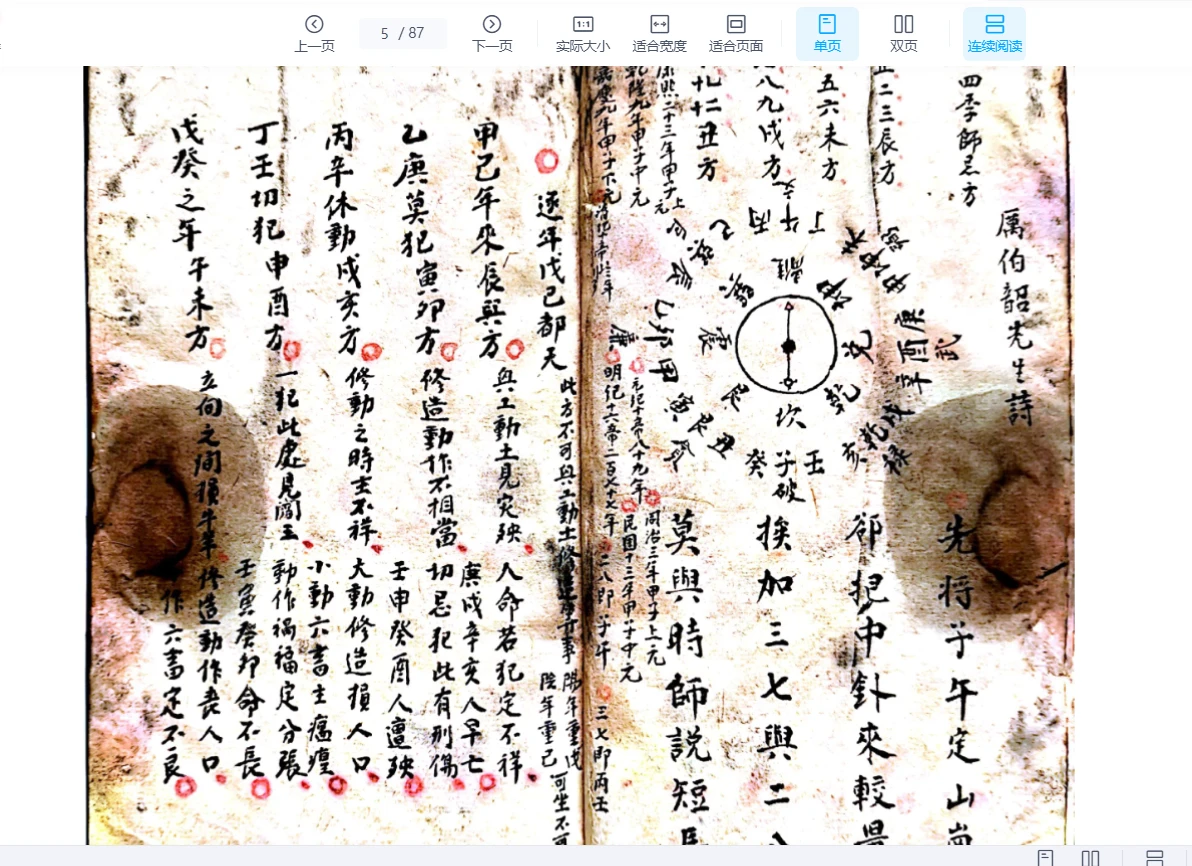 上一页
5 / 87
下一页
实际大小
适合宽度
适合页面
单页
双页
连续阅读
四季師忌方
二三辰方
五六未方
八九戌方
十二丑方
厲伯韶先生詩
先将子午定山崗
卻把中針來較量
挨加三七與二八
莫與時師説短長
康熙二十三年甲子上元
乾隆九年甲子中元
嘉慶九年甲子下元
同治三年甲子上元
民国十三年甲子中元
元纪十帝八十九年
明纪十六帝二百七十七年
二八即子午
三七即丙壬
丁午丙
離
巽
震
艮
坎
乾
兌
坤
壬子癸
破
丑艮寅
甲卯乙
辰
庚酉辛
武
戌乾亥
祿
廉
逐年戊己都天
此方不可興工動土修造等可事
陽年重戊
陰年重己
可坐不可
甲己年來辰巽方
興工動土見灾殃
人命若犯定不祥
庚戌辛亥人早亡
乙庚莫犯寅卯方
修造動作不相當
切忌犯此有刑傷
壬申癸酉人遭殃
丙辛休動戌亥方
修動之時主不祥
大動修造損人口
小動六畜主瘟瘟
丁壬切犯申酉方
一犯此處見閻王
動作禍福定分張
壬寅癸卯命不長
戊癸之年午未方
立向之间損牛羊
修造動作丧人口
作六畜定不良